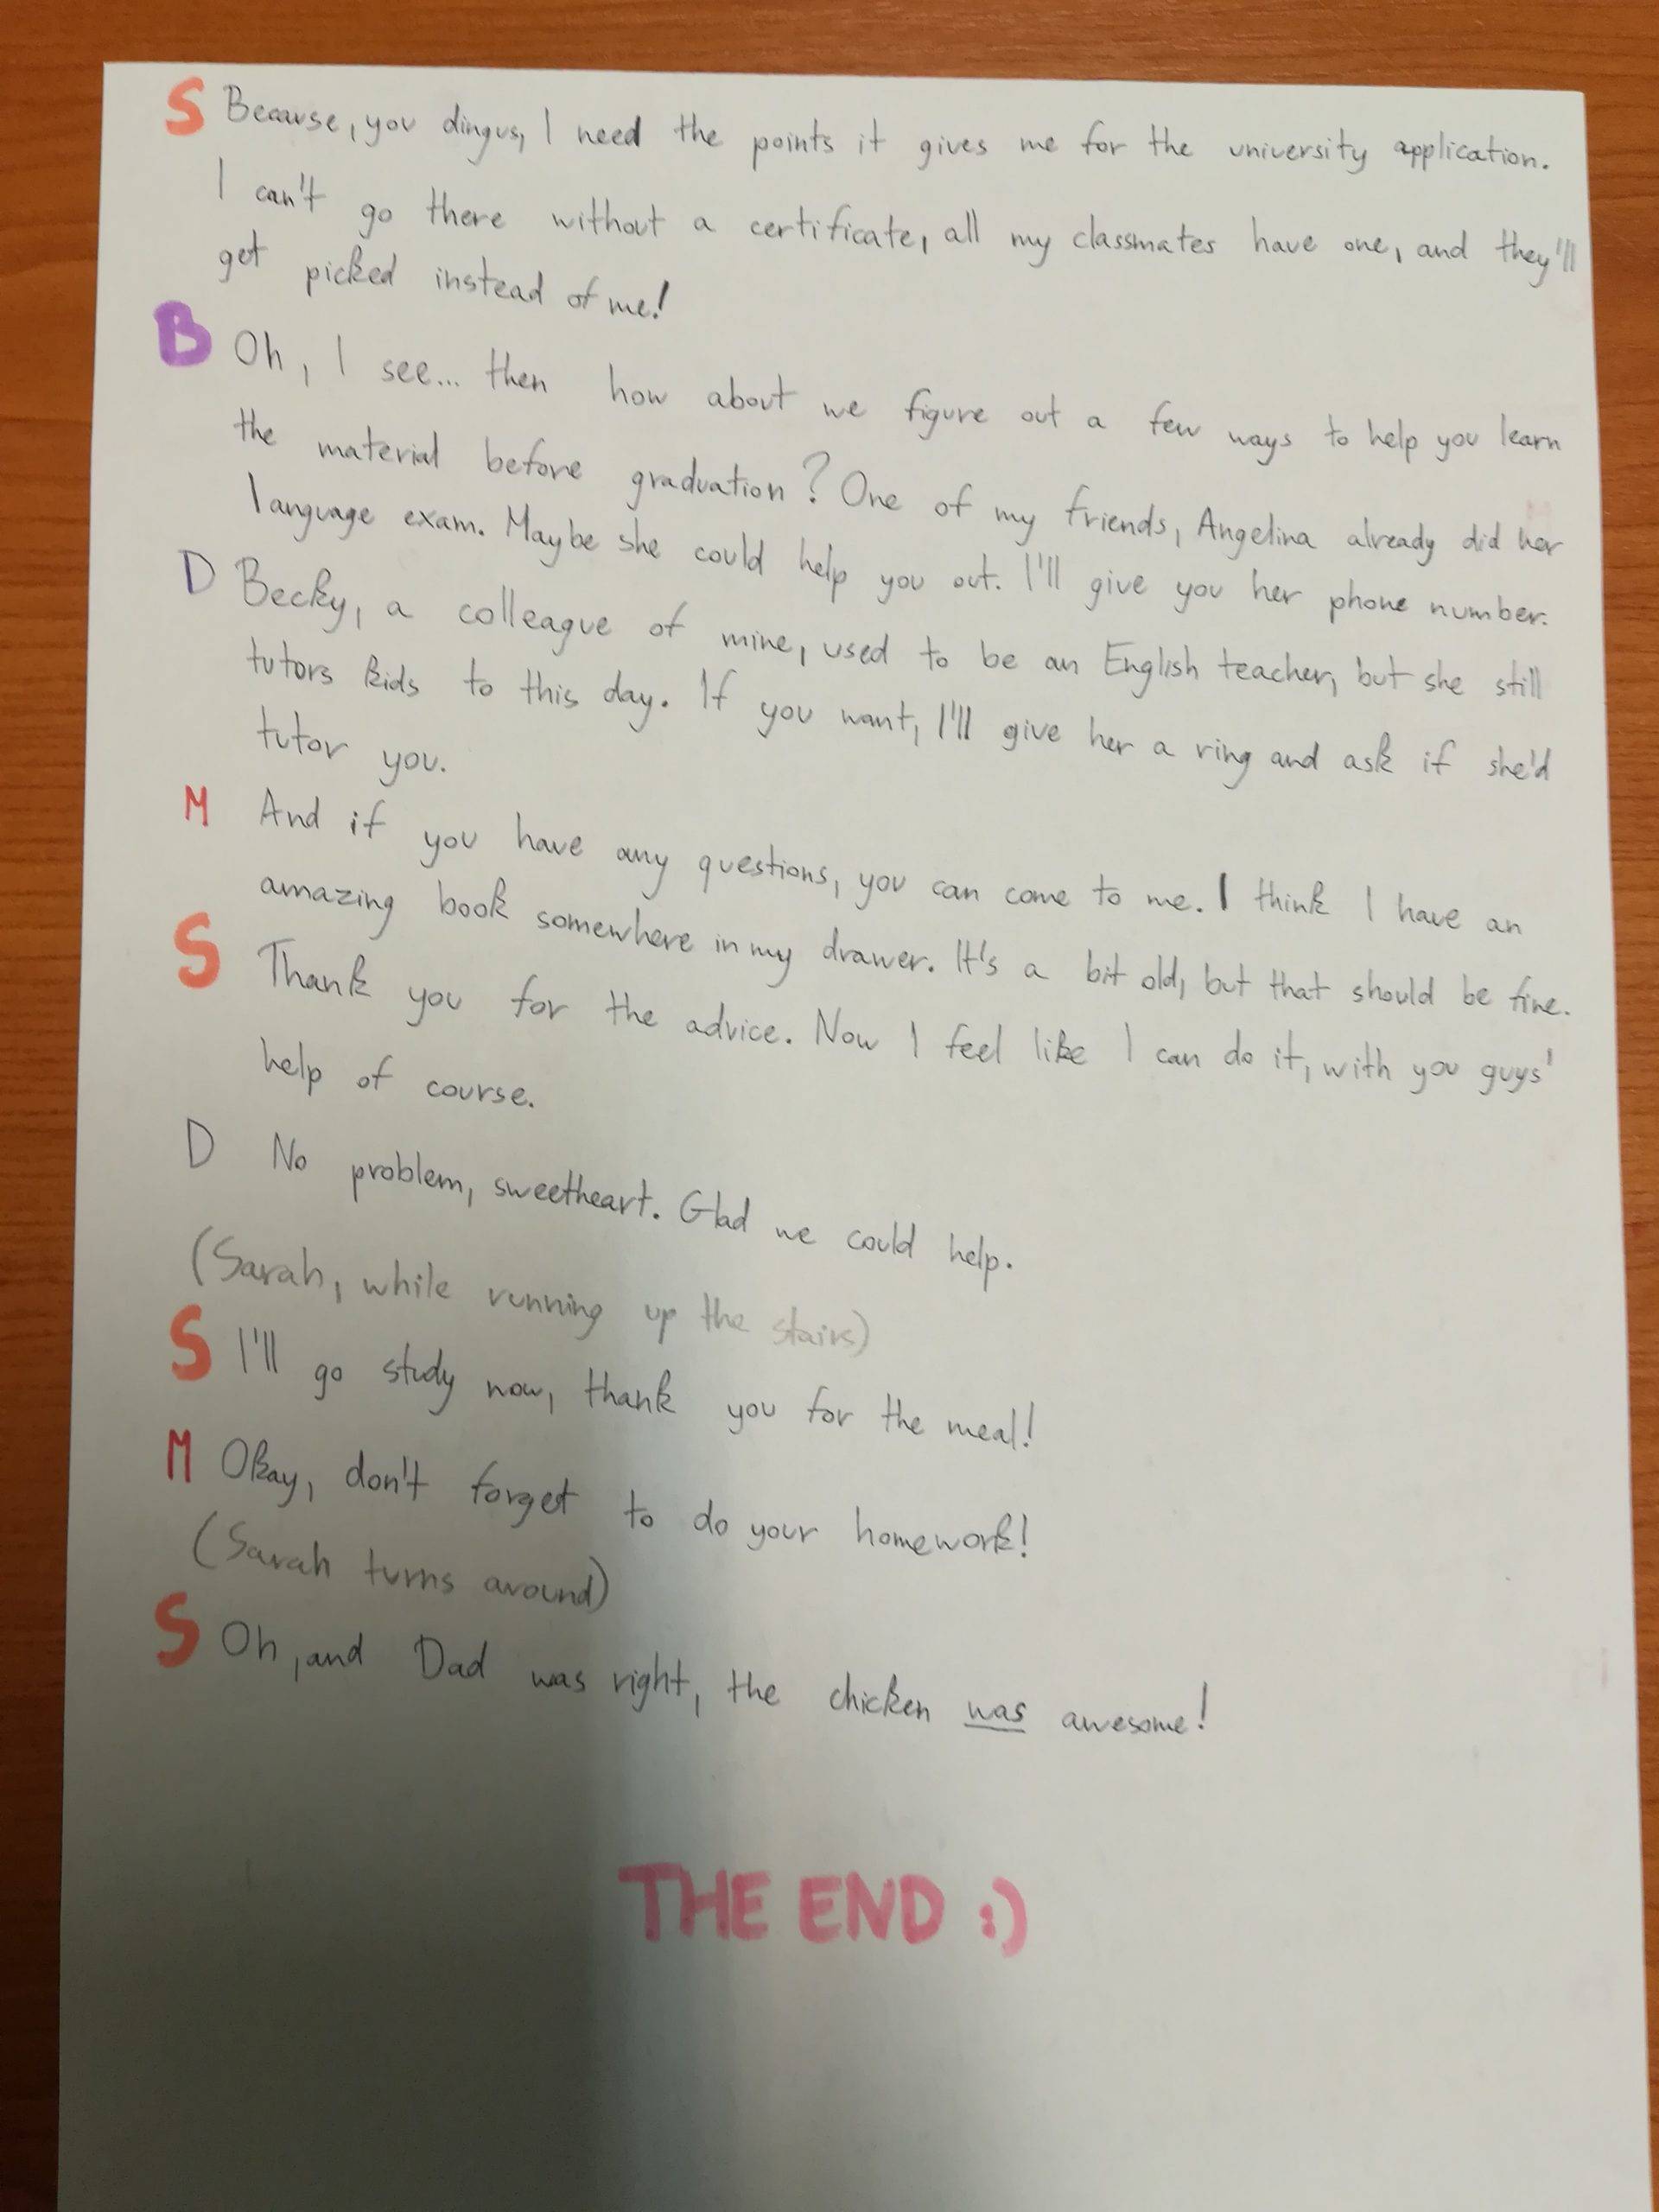 S Because, you dingus, I need the points it gives me for the university application.
I can't go there without a certificate, all my classmates have one, and they'll
get picked instead of me!
B Oh, I see... then how about we figure out a few ways to help you learn
the material before graduation? One of my friends, Angelina already did her
language exam. Maybe she could help you out. I'll give you her phone number.
D Becky, a colleague of mine, used to be an English teacher, but she still
tutors kids to this day. If you want, I'll give her a ring and ask if she'd
tutor you.
M And if you have any questions, you can come to me. I think I have an
amazing book somewhere in my drawer. It's a bit old, but that should be fine.
S Thank you for the advice. Now I feel like I can do it, with you guys'
help of course.
D No problem, sweetheart. Glad we could help.
(Sarah, while running up the stairs)
S I'll go study now, thank you for the meal!
M Okay, don't forget to do your homework!
(Sarah turns around)
S Oh, and Dad was right, the chicken was awesome!
THE END :)